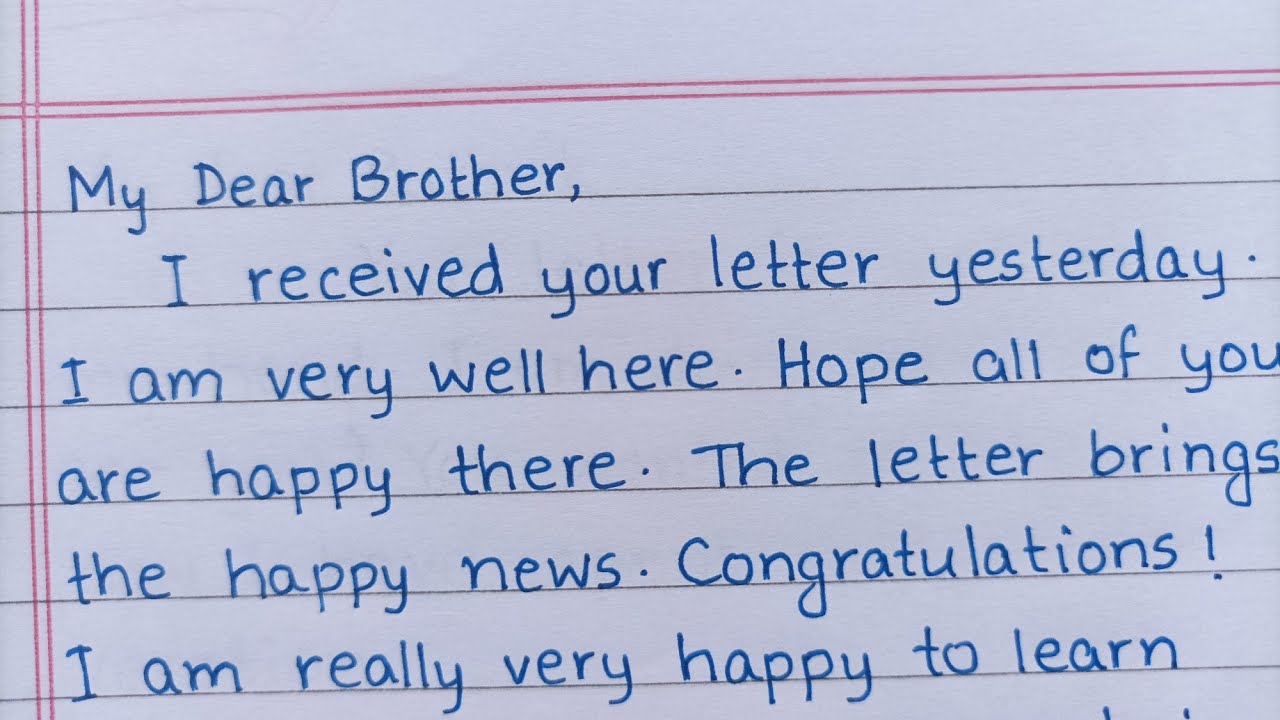 My Dear Brother,
I received your letter yesterday.
I am very well here. Hope all of you
are happy there. The letter brings
the happy news. Congratulations!
I am really very happy to learn